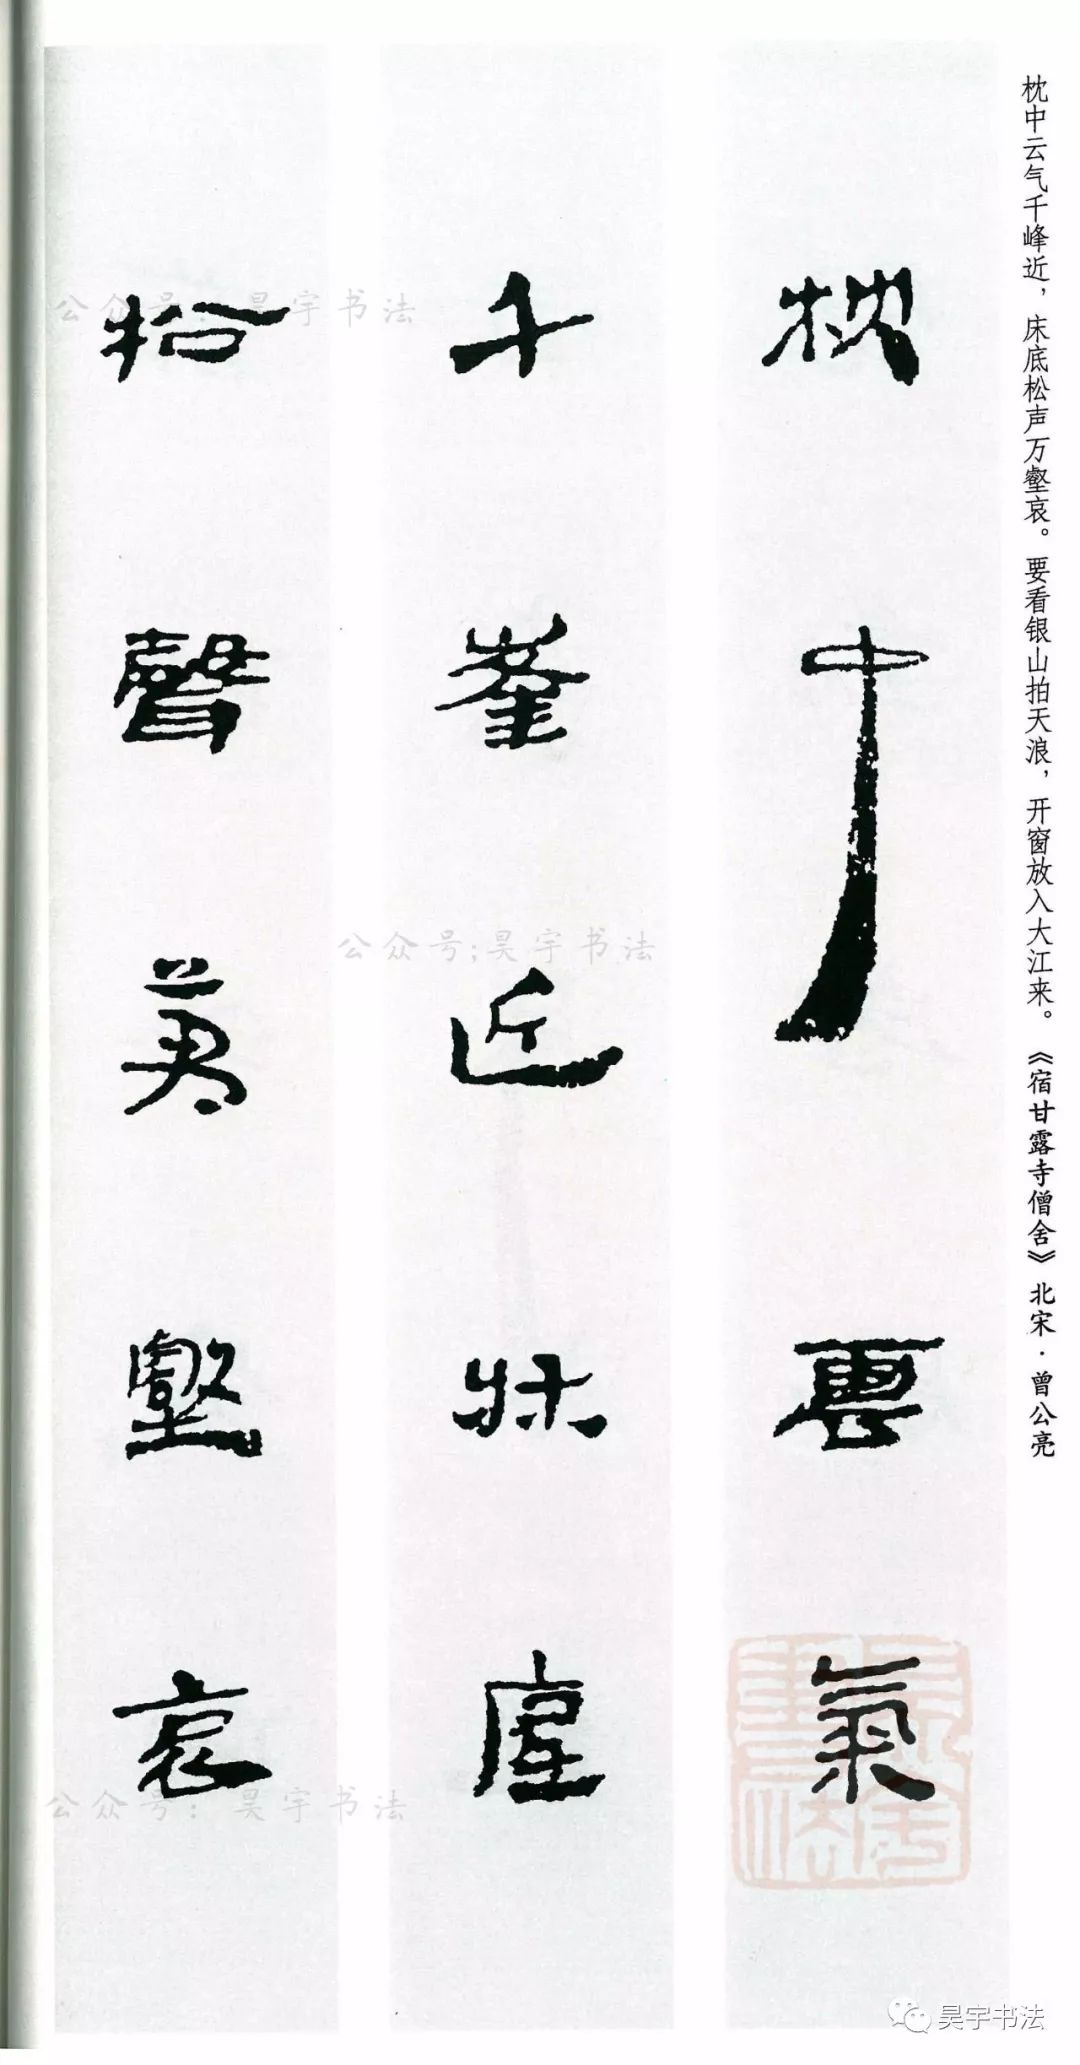 枕中云气千峰近，床底松声万壑哀。要看银山拍天浪，开窗放入大江来。《宿甘露寺僧舍》北宋·曾公亮
枕中雲氣
千峯近牀底
松聲萬壑哀
公众号：昊宇书法
公众号;昊宇书法
公众号：昊宇书法
昊宇书法